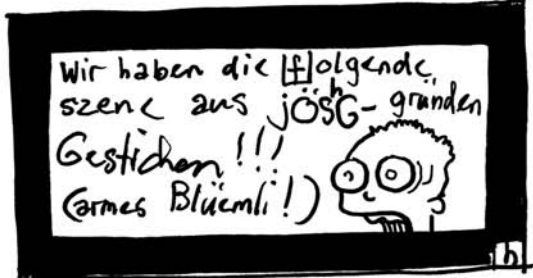 Wir haben die [f]olgende
szene aus jöshG-gründen
Gestichen!!!
(armes Blüemli!)
h